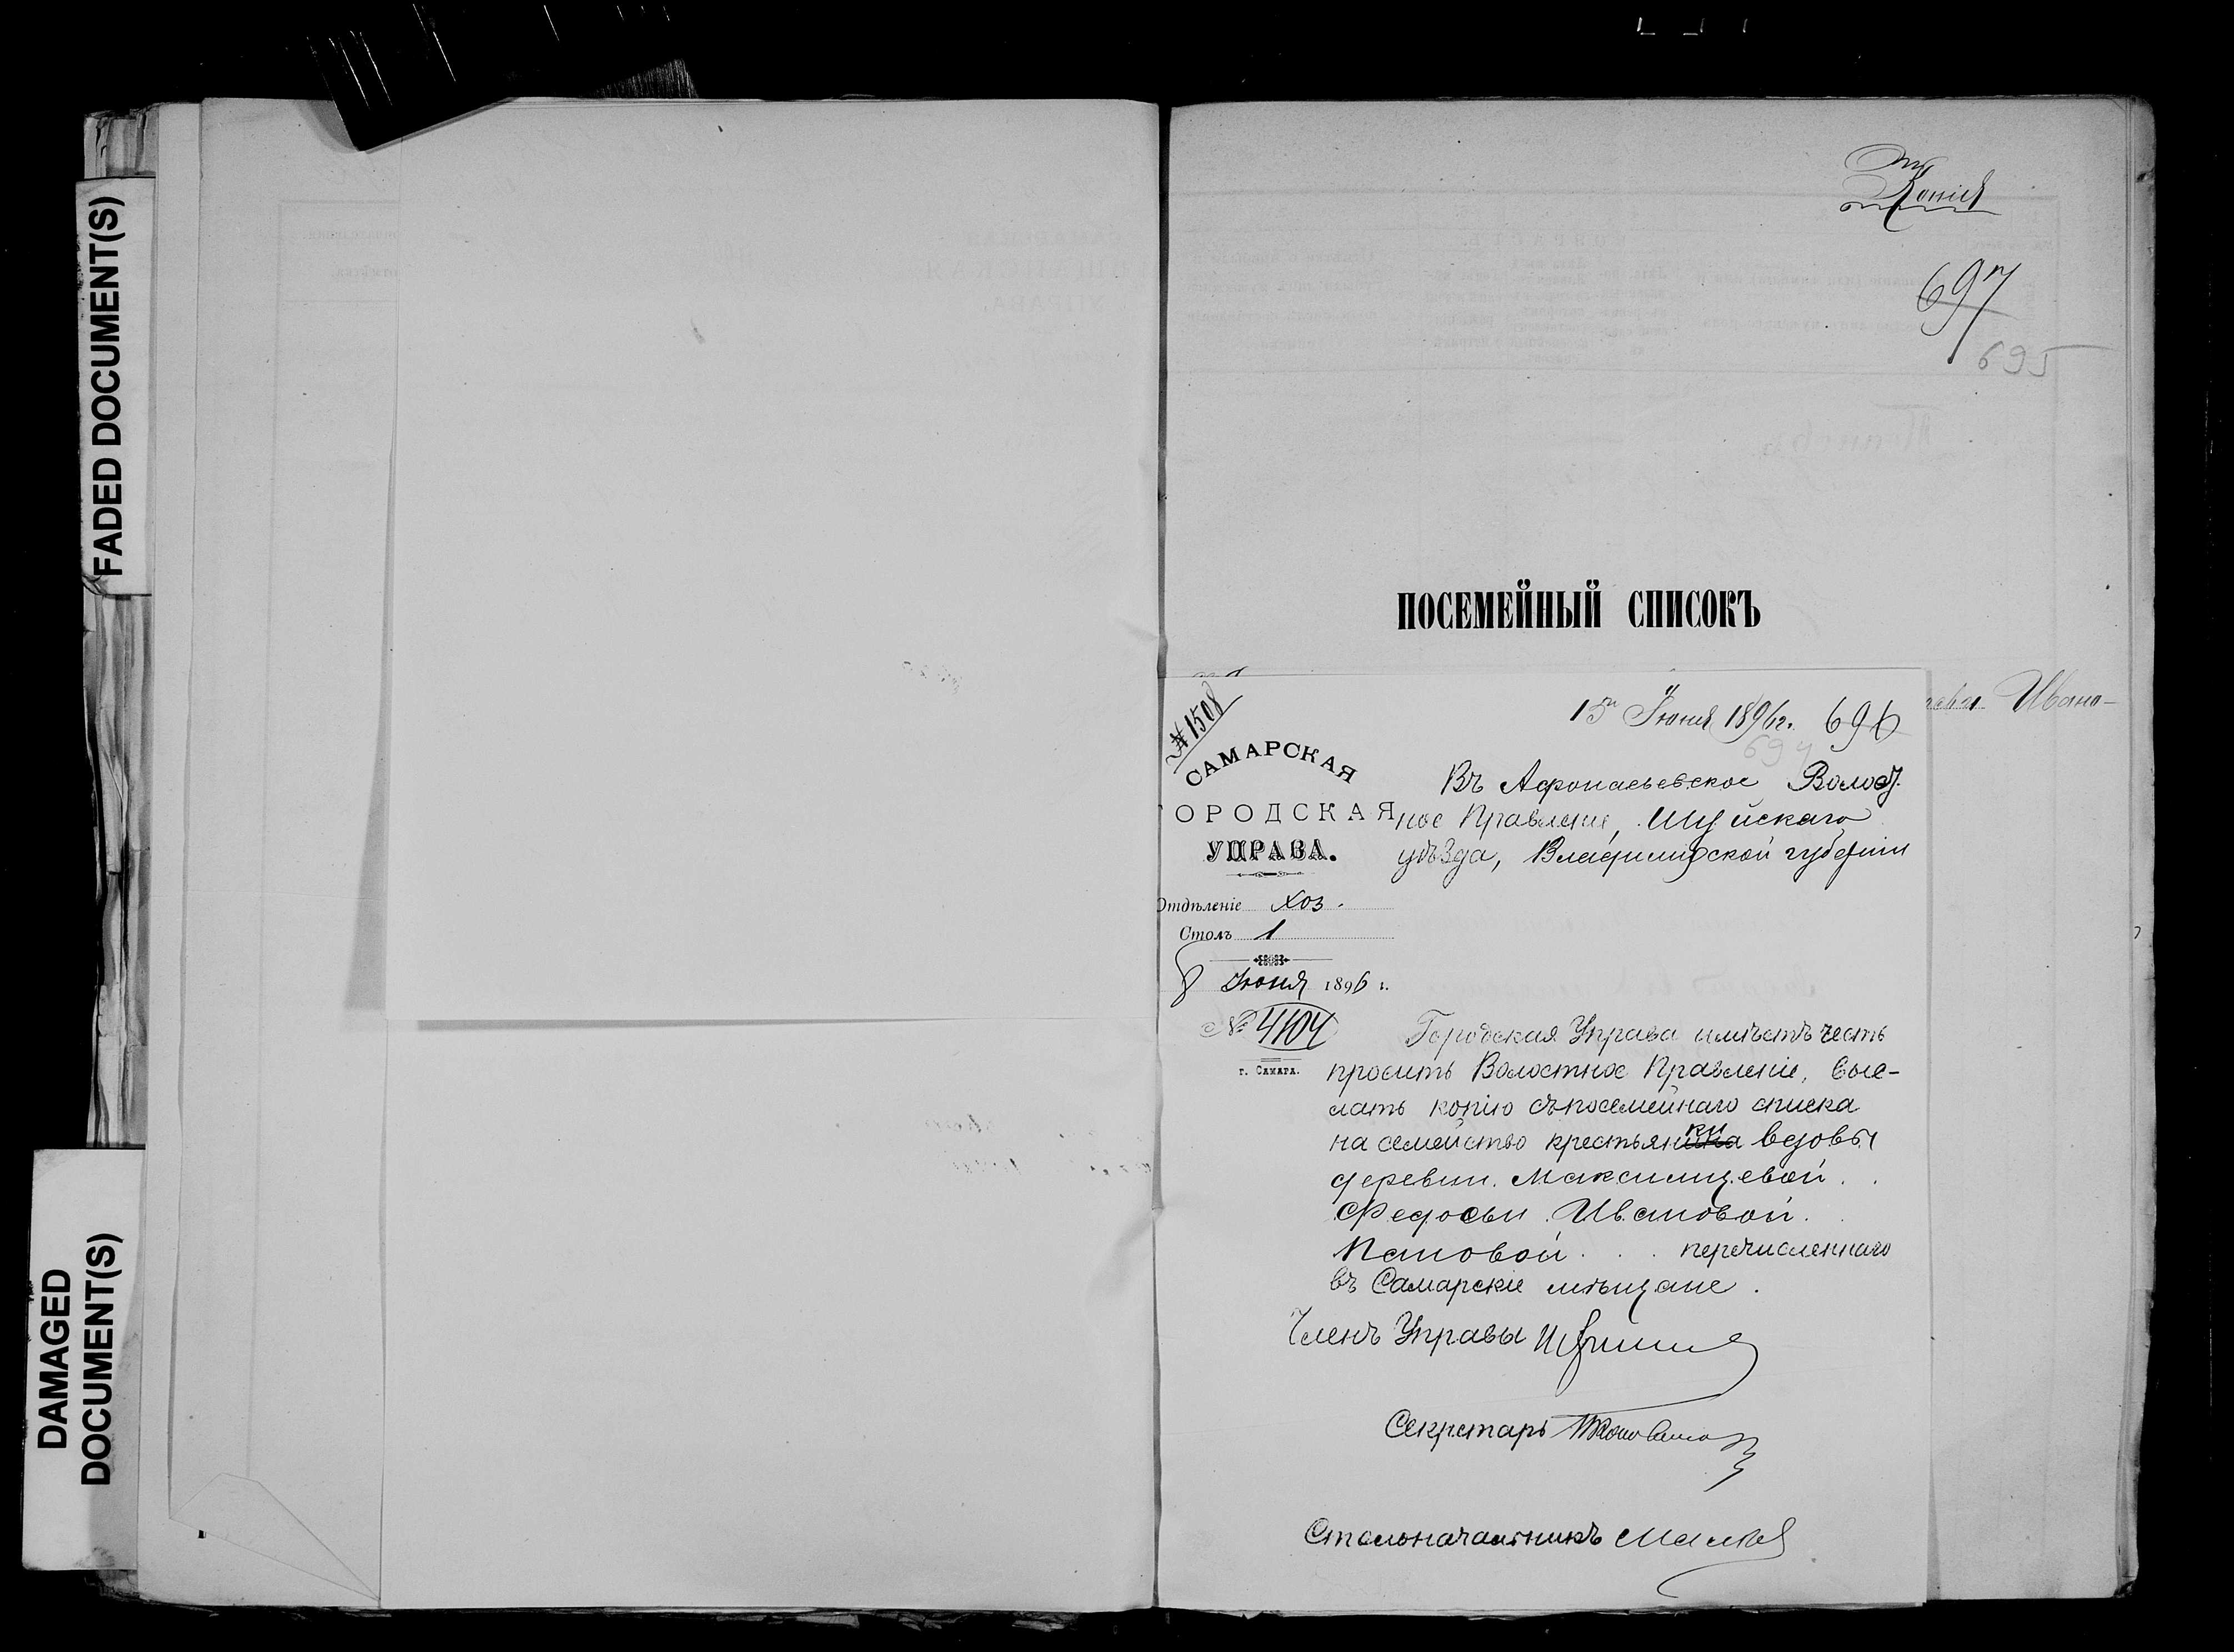 FADED DOCUMENT(S)
DAMAGED
DOCUMENT(S)
Копія
697
695
ПОСЕМЕЙНЫЙ СПИСОКЪ
Ивано-
№ 1508
15 Іюня 1896 г. 696
694
САМАРСКАЯ
ОРОДСКАЯ
УПРАВА.
Отдѣленіе Хоз.
Столъ 1
8 Іюня 1896 г.
№ 4104
г. САМАРА.
Въ Афонасьевское Волост.
ное Правленіе, Шуйскаго
уѣзда, Владимирской губерніи
Городская Управа имѣетъ честь
просить Волостное Правленіе, выс-
лать копію съ посемейнаго списка
на семейство крестьянки вдовы
деревни Максимцевой
Федосьи Ивановой
Пановой перечисленнаго
въ Самарскіе мѣщане.
Членъ Управы
Секретарь
Столоначальникъ